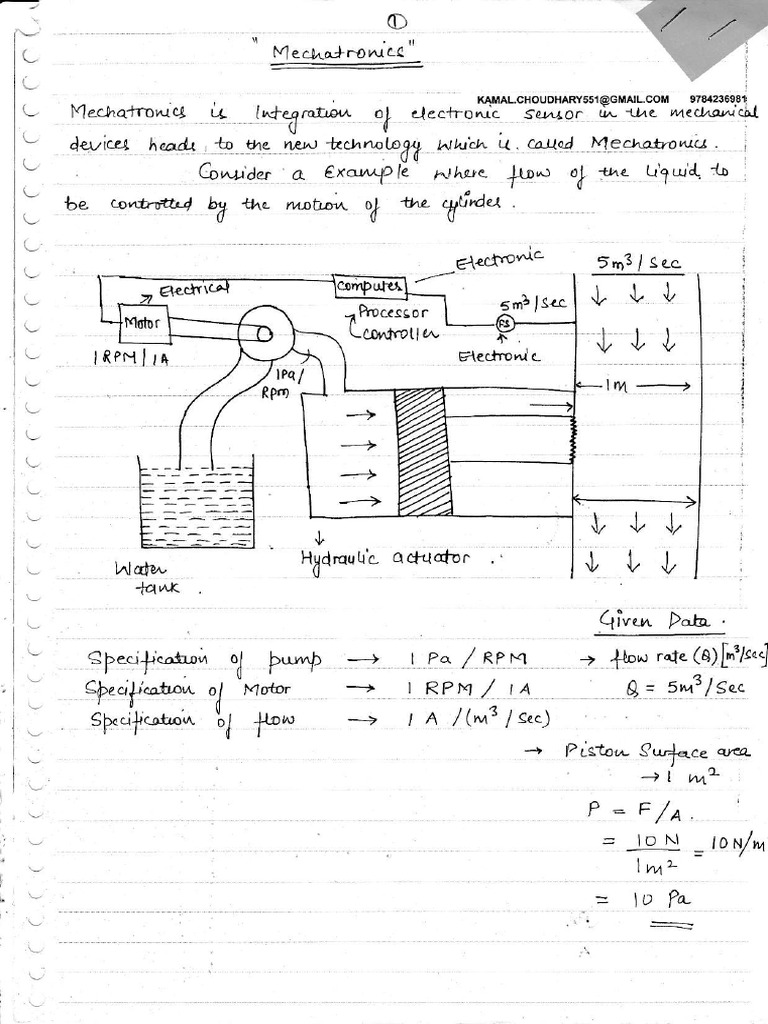 1
"Mechatronics"
KAMAL.CHOUDHARY551@GMAIL.COM 9784236981
Mechatronics is Integration of electronic sensor in the mechanical
devices heads to the new technology which is called Mechatronics.
Consider a Example where flow of the liquid to
be controlled by the motion of the cylinder.
Electronic
5m³/sec
Electrical
Computer
5m³/sec
Motor
Processor
controller
FS
1RPM/1A
Electronic
1Pa/
Rpm
1m
Hydraulic actuator.
Water
tank.
Given Data.
Specification of pump → 1 Pa / RPM → flow rate (Q) [m³/sec]
Specification of Motor → 1 RPM / 1A Q = 5m³/sec
Specification of flow → 1 A /(m³/sec)
→ Piston Surface area
→ 1 m²
P = F/A.
= 10N/1m² = 10N/m
= 10 Pa